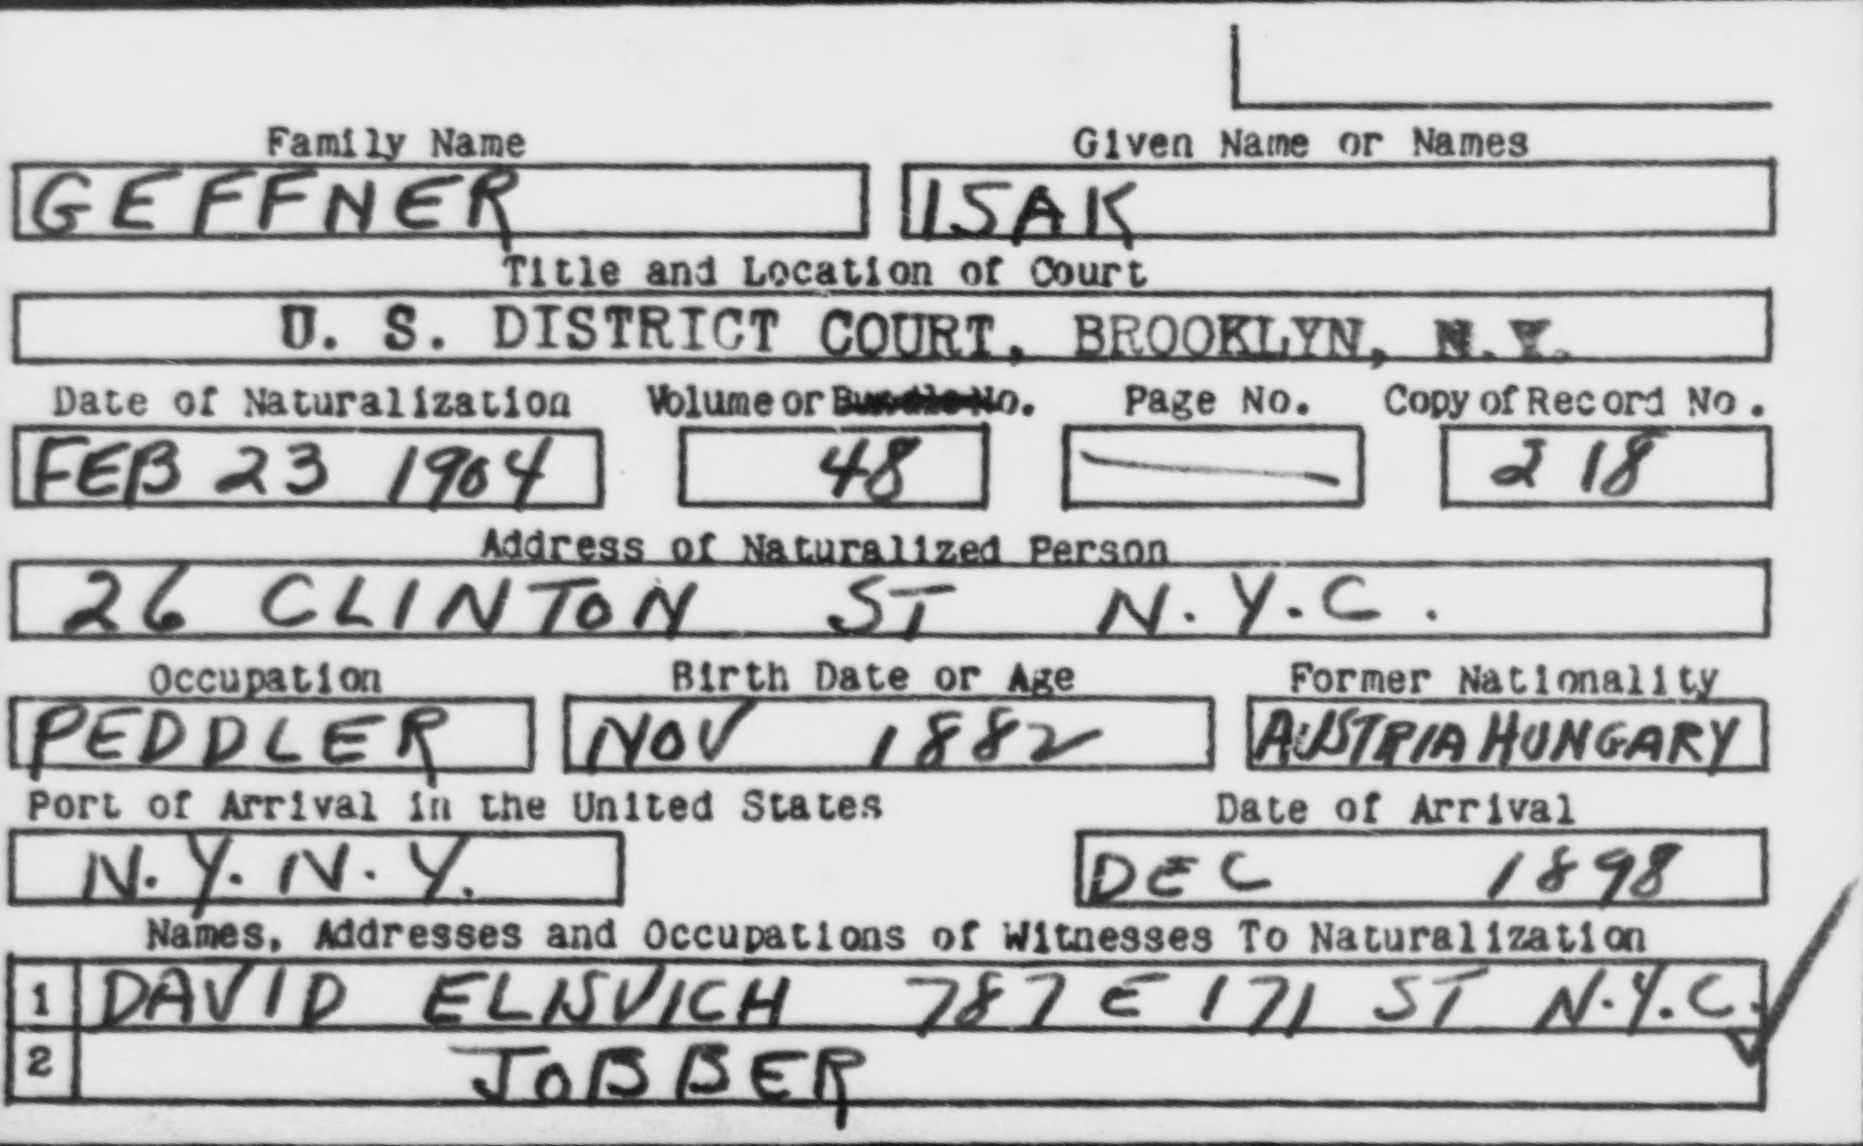 Family Name Given Name or Names
GEFFNER ISAK
Title and Location of Court
U. S. DISTRICT COURT, BROOKLYN, N.Y.
Date of Naturalization Volume or Bundle No. Page No. Copy of Record No.
FEB 23 1904 48 218
Address of Naturalized Person
26 CLINTON ST N.Y.C.
Occupation Birth Date or Age Former Nationality
PEDDLER NOV 1882 AUSTRIA HUNGARY
Port of Arrival in the United States Date of Arrival
N.Y. N.Y. DEC 1898
Names, Addresses and Occupations of Witnesses To Naturalization
1 DAVID 787 E 171 ST N.Y.C.
2 JOBBER